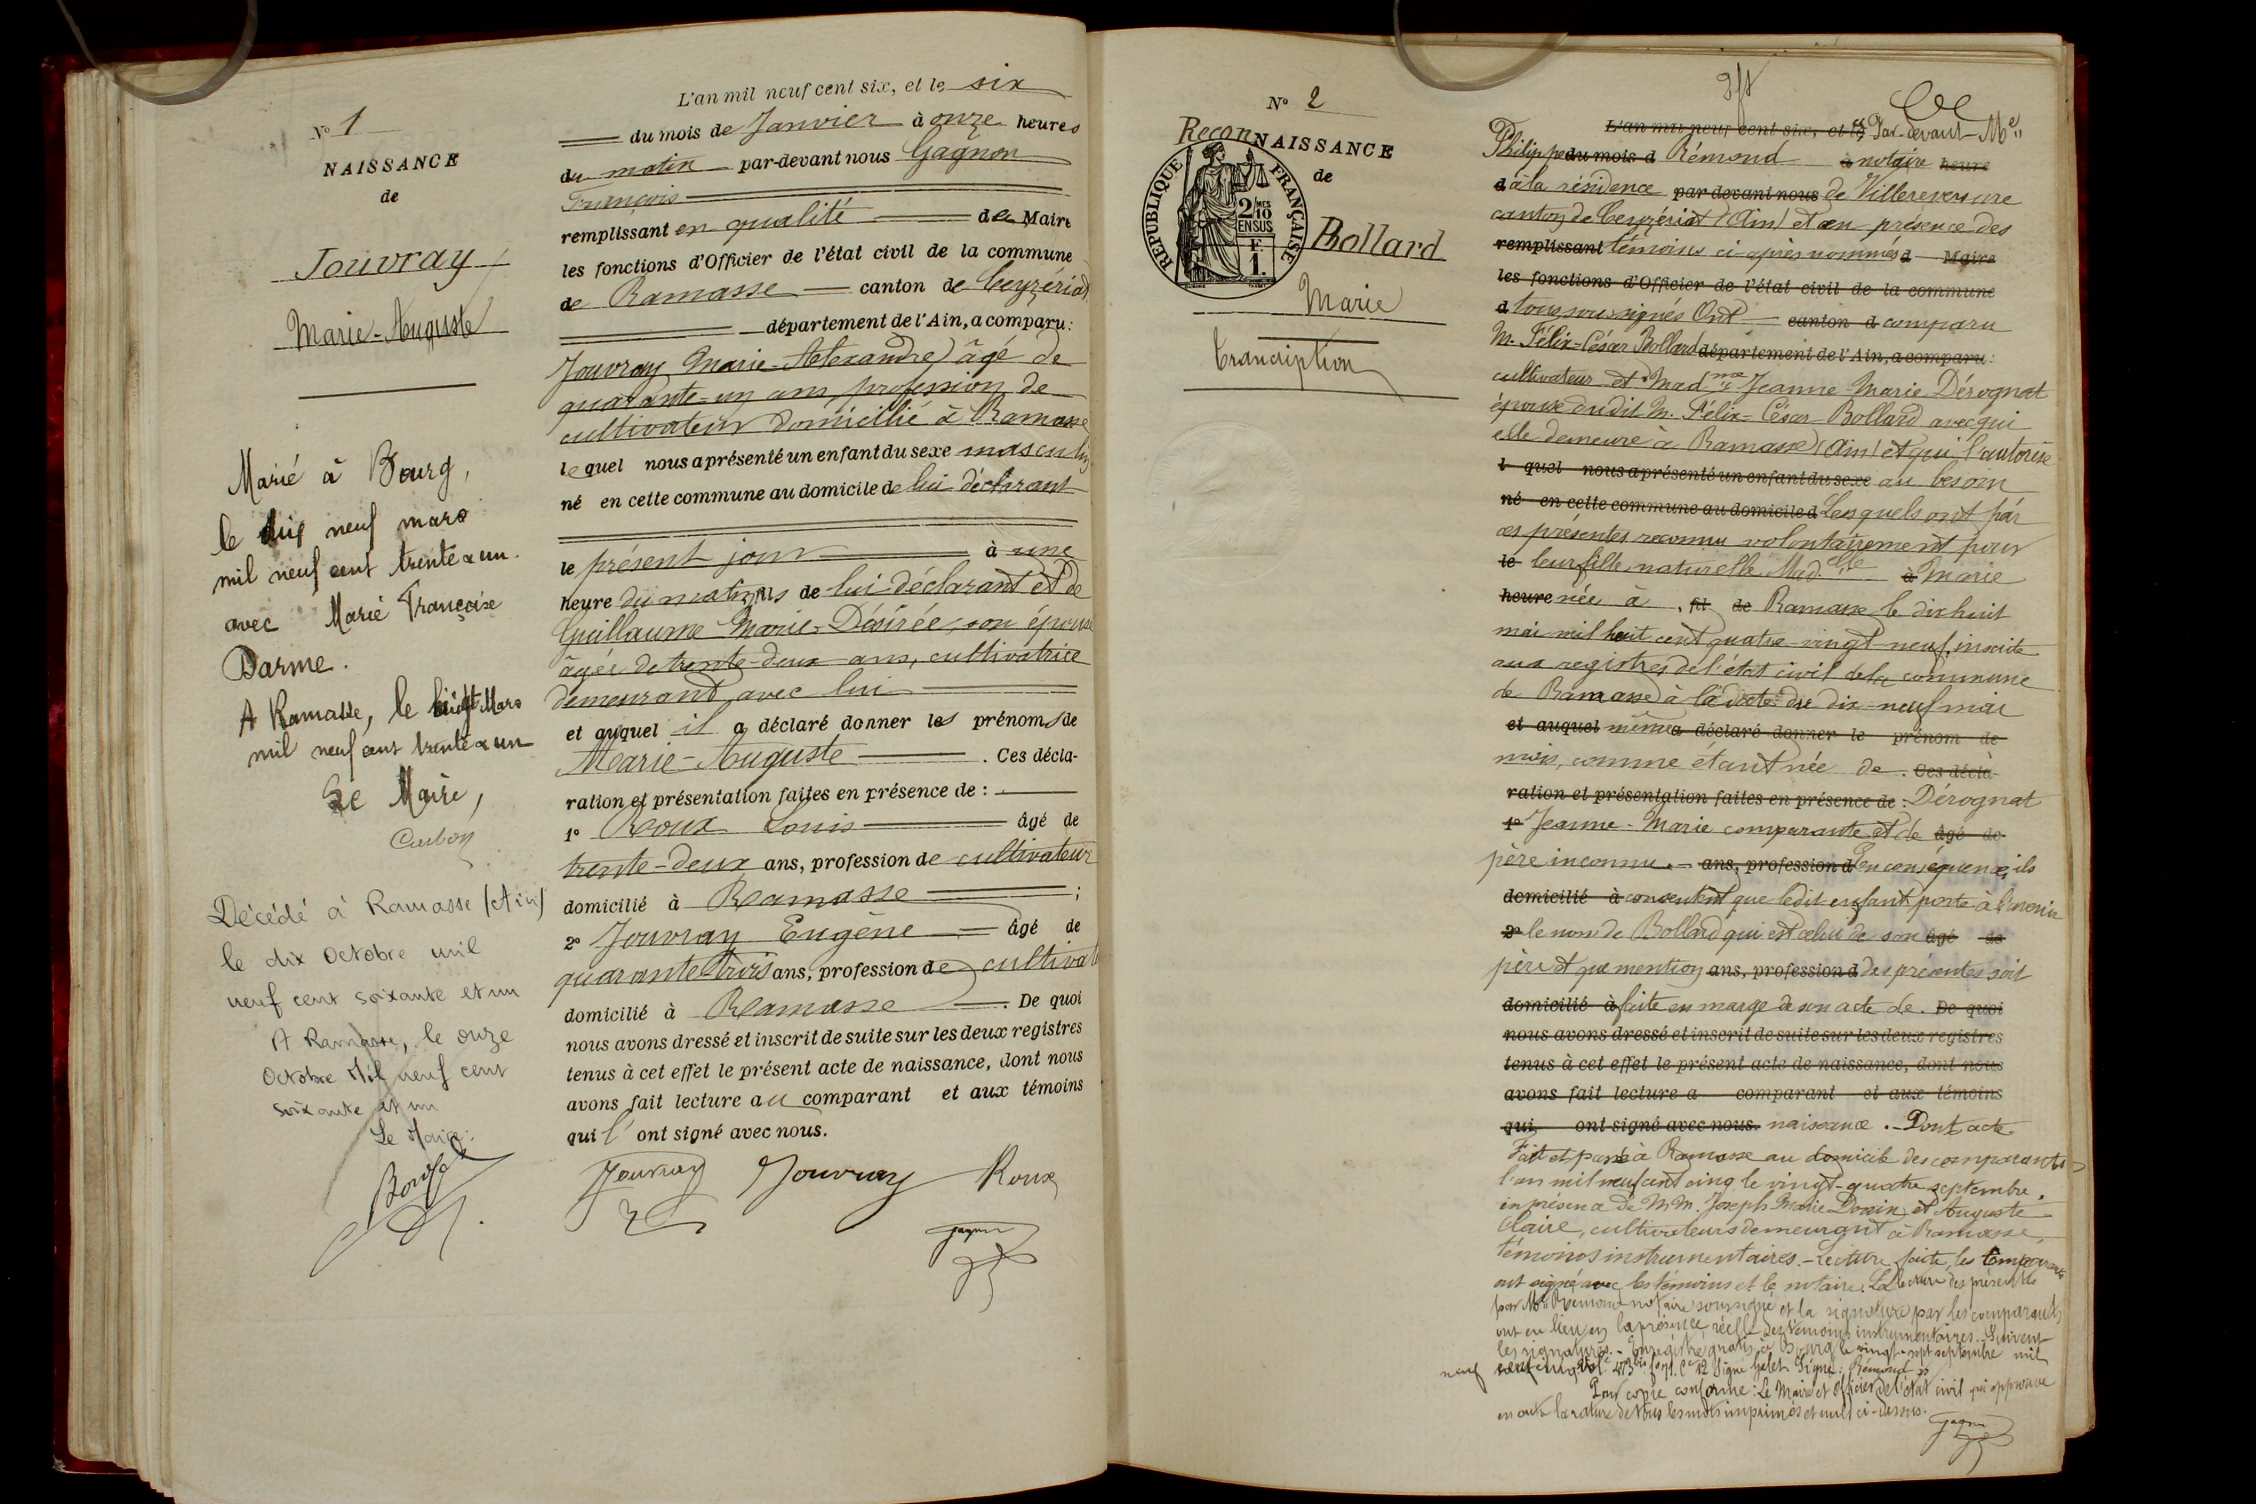 N° 1
NAISSANCE
de
Jouvray
Marie-Auguste
Marié à Bourg,
le dix neuf mars
mil neuf cent trente & un.
avec Marie Françoise
Darme.
A Ramasse, le vingt Mars
mil neuf cent trente & un
Le Maire,
Décédé à Ramasse (Ain)
le dix Octobre mil
neuf cent soixante et un
A Ramasse, le onze
Octobre Mil neuf cent
soixante et un
Le Maire:
L'an mil neuf cent six, et le six
du mois de Janvier à onze heures
du matin par-devant nous Gagnon
François
remplissant en qualité de Maire
les fonctions d'Officier de l'état civil de la commune
de Ramasse canton de Ceyzériat
département de l'Ain, a comparu:
Jouvray Marie-Alexandre) âgé de
quarante-un ans, profession de
cultivateur domicilié à Ramasse
lequel nous a présenté un enfant du sexe masculin
né en cette commune au domicile de lui déclarant
le présent jour à une
heure du matin, fils de lui déclarant et de
Guillaume Marie-Désirée, son épouse
âgée de trente-deux ans, cultivatrice
demeurant avec lui
et auquel il a déclaré donner les prénoms de
Marie-Auguste . Ces décla-
ration et présentation faites en présence de :
1° Roux Louis âgé de
trente-deux ans, profession de cultivateur
domicilié à Ramasse ;
2° Jouvray Eugène âgé de
quarante trois ans, profession de cultivat
domicilié à Ramasse . De quoi
nous avons dressé et inscrit de suite sur les deux registres
tenus à cet effet le présent acte de naissance, dont nous
avons fait lecture au comparant et aux témoins
qui l' ont signé avec nous.
Jouvray Jouvray Roux
Gagnon
N° 2
ReconNAISSANCE
de
REPUBLIQUE FRANÇAISE
2/10 MES
EN SUS
F.
1.
Bollard
Marie
Transcription
L'an mil neuf cent six, et le Par-devant Me
Philippe du mois d Rémond à notaire heure
d à la résidence par-devant nous de Villereversure
canton de Ceyzériat (Ain) et en présence des
remplissant témoins ci-après nommés d Maire
les fonctions d'Officier de l'état civil de la commune
d tous soussignés Ont canton d comparu
M. Félix-César Bollard département de l'Ain, a comparu:
cultivateur et Mad me Jeanne-Marie Dérognat
épouse dudit M. Félix-César Bollard avec qui
elle demeure à Ramasse (Ain) et qui l'autorise
l quel nous a présenté un enfant du sexe au besoin
né en cette commune au domicile d Lesquels ont par
ces présentes reconnu volontairement pour
le leur fille naturelle Mad.elle à Marie
heure née à , fil de Ramasse le dix huit
mai mil huit cent quatre-vingt neuf, inscrite
aux registres de l'état civil de la commune
de Ramasse à la date du dix-neuf mai
et auquel même a déclaré donner le prénom de
mois, comme étant née de . Ces décla-
ration et présentation faites en présence de : Dérognat
1° Jeanne-Marie comparante et de âgé de
père inconnu. ans, profession d En conséquence, ils
domicilié à consentent que ledit enfant porte à l'avenir
2° le nom de Bollard qui est celui de son âgé de
père et que mention ans, profession d des présentes soit
domicilié à faite en marge de son acte de . De quoi
nous avons dressé et inscrit de suite sur les deux registres
tenus à cet effet le présent acte de naissance, dont nous
avons fait lecture a comparant et aux témoins
qui ont signé avec nous. naissance. Dont acte
Fait et passé à Ramasse au domicile des comparants
l'an mil neuf cent cinq le vingt-quatre septembre.
en présence de M.M. Joseph Marie et Auguste
Claire, cultivateurs demeurant à Ramasse,
témoins instrumentaires. Lecture faite, les comparants
ont signé avec les témoins et le notaire. La lecture des présentes
par Me Rémond notaire soussigné et la signature par les comparants
ont eu lieu en la présence réelle des témoins instrumentaires. Suivent
les signatures. Enregistré gratis à Bourg le vingt-sept septembre mil
neuf cent cinq Signé Signé: Rémond »
Pour copie conforme: Le Maire et officier de l'état civil qui approuve
en outre la rature de tous les mots imprimés et nuls ci-dessus.
Gagnon